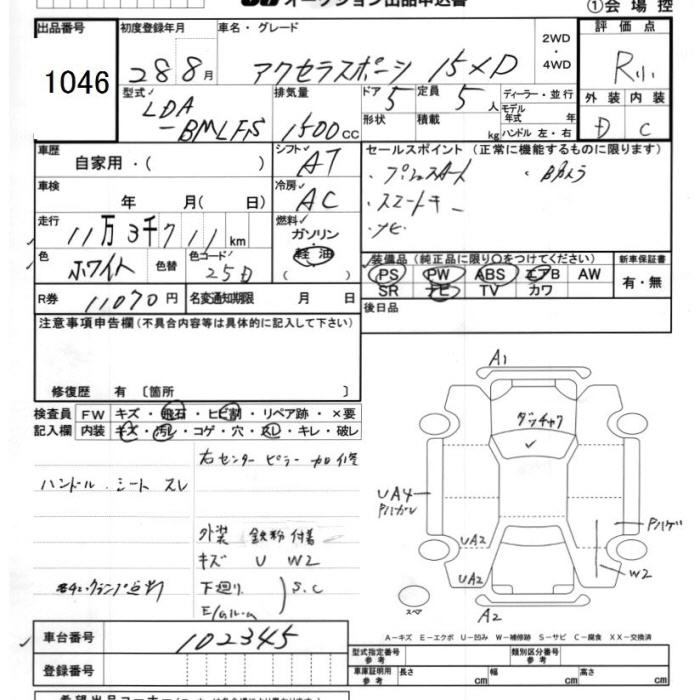 オークション出品申込書
①会場控
出品番号 初度登録年月 車名・グレード 2WD・4WD 評価点
1046 28 8月 アクセラスポーツ 15XD R小
型式 LDA-BMLFS 排気量 1500 CC ドア 5 形状 定員 5 人 積載 kg ディーラー・並行 モデル年式 年 ハンドル 左・右 外装 D 内装 C
車歴 自家用・( ) シフト AT セールスポイント (正常に機能するものに限ります)
・プッシュスタート ・Bカメラ
車検 年 月(日) 冷房 AC ・スマートキー
・ナビ
走行 11万3千711km 燃料 ガソリン・軽油 ( )
色 ホワイト 色替 色コード 25D
装備品 (純正品に限り○をつけてください) 新車保証書
PS PW ABS エアB AW 有・無
SR ナビ TV カワ
R券 11070円 名変通知期限 月 日 後日品
注意事項申告欄 (不具合内容等は具体的に記入して下さい)
修復歴 有 〔箇所 〕
検査員記入欄 FW キズ・飛石・ヒビ割・リペア跡・×要
内装 キズ・汚レ・コゲ・穴・スレ・キレ・破レ
右センターピラー 加修
ハンドル.シート スレ
外装 鉄粉付着
キズ U W2
下廻り S.C
E/Gルーム
A1
ダッチャク
UA4
Pハガレ
UA2
UA2
Pハゲ
W2
スペア
A2
A-キズ E-エクボ U-凹み W-補修跡 S-サビ C-腐食 XX-交換済
車台番号 102345
登録番号
型式指定番号 参考 類別区分番号 参考
車庫証明用 参考 長さ cm 幅 cm 高さ cm